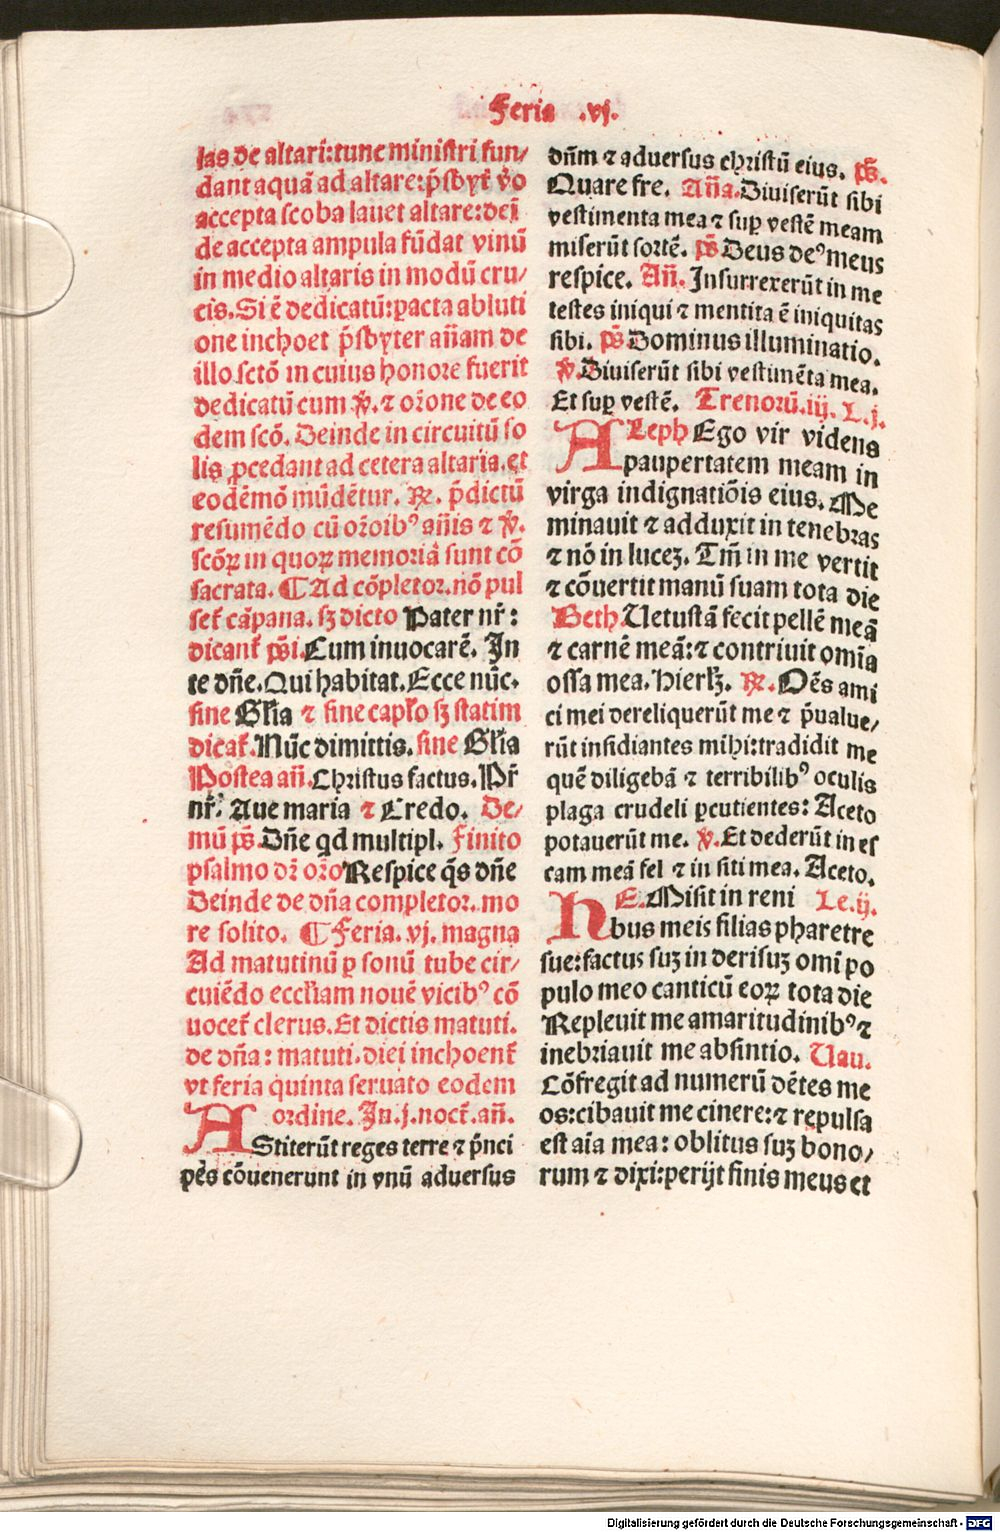 Feria .vj.
las de altari:tunc ministri fun/
dant aquā ad altare:p̄sbyt̄ v̄o
accepta scoba lauet altare:dei
de accepta ampula fūdat vinū
in medio altaris in modū cru/
cis.Si ē dedicatū:pacta abluti
one inchoet p̄sbyter añam de
illo scto in cuius honore fuerit
dedicatū cum ℣.⁊ orōne de eo
dem scō. Deinde in circuitū so
lis ꝓcedant ad cetera altaria.et
eodēmō mūdētur. ℞. p̄dictū
resumēdo cū orōibꝰ añis ⁊ ℣.
scōꝝ in quoꝝ memoriā sunt cō
sacrata. ¶ Ad cōpletor.nō pul
set᷑ cāpana. sꝫ dicto Pater nr̄:
dicant᷑ ps̄i.Cum inuocarē. In
te dñe.Qui habitat.Ecce nūc.
sine Gl̄ia ⁊ sine capl̄o sꝫ statim
dicat᷑.Nūc dimittis.sine Gl̄ia
Postea añ.Christus factus.Pr̄
nr̄. Aue maria ⁊ Credo. De/
mū ps̄.Dñe qd multipl. Finito
psalmo dr̄ orōRespice q̄s dñe
Deinde de dña completor.mo
re solito. ¶ Feria. vj. magna
Ad matutinū ꝑ sonū tube cir/
cuiēdo eccl̄iam nouē vicibꝰ cō
uocet᷑ clerus.Et dictis matuti.
de dña: matuti.diei inchoent᷑
vt feria quinta seruato eodem
ordine. In.j.noct̄.añ.
AStiterūt reges terre ⁊ p̄nci
pēs cōuenerunt in vnū aduersus
dñm ⁊ aduersus christū eius. ps̄.
Quare fre. Aña.Diuiserūt sibi
vestimenta mea ⁊ suꝑ vestē meam
miserūt sortē. ps̄ Deus deꝰ meus
respice. Añ. Insurrexerūt in me
testes iniqui ⁊ mentita ē iniquitas
sibi. ps̄ Dominus illuminatio.
℣.Diuiserūt sibi vestimēta mea.
Et suꝑ vestē. Trenorū.iij. L.j.
ALeph Ego vir videns
paupertatem meam in
virga indignatiōis eius. Me
minauit ⁊ adduxit in tenebras
⁊ nō in lucez. Tm̄ in me vertit
⁊ cōuertit manū suam tota die
Beth Uetustā fecit pellē meā
⁊ carnē meā:⁊ contriuit om̄ia
ossa mea. Hierl̄ꝫ. ℞. Oēs ami
ci mei dereliquerūt me ⁊ p̄ualue/
rūt insidiantes mihi:tradidit me
quē diligebā ⁊ terribilibꝰ oculis
plaga crudeli ꝑcutientes: Aceto
potauerūt me. ℣. Et dederūt in es
cam meā fel ⁊ in siti mea. Aceto.
HE.Misit in reni Le.ij.
bus meis filias pharetre
sue:factus suꝫ in derisuꝫ omī po
pulo meo canticū eoꝝ tota die
Repleuit me amaritudinibꝰ ⁊
inebriauit me absintio. Uau.
Cōfregit ad numerū dētes me
os:cibauit me cinere:⁊ repulsa
est aīa mea: oblitus suꝫ bono/
rum ⁊ dixi:perijt finis meus et
Digitalisierung gefördert durch die Deutsche Forschungsgemeinschaft - DFG